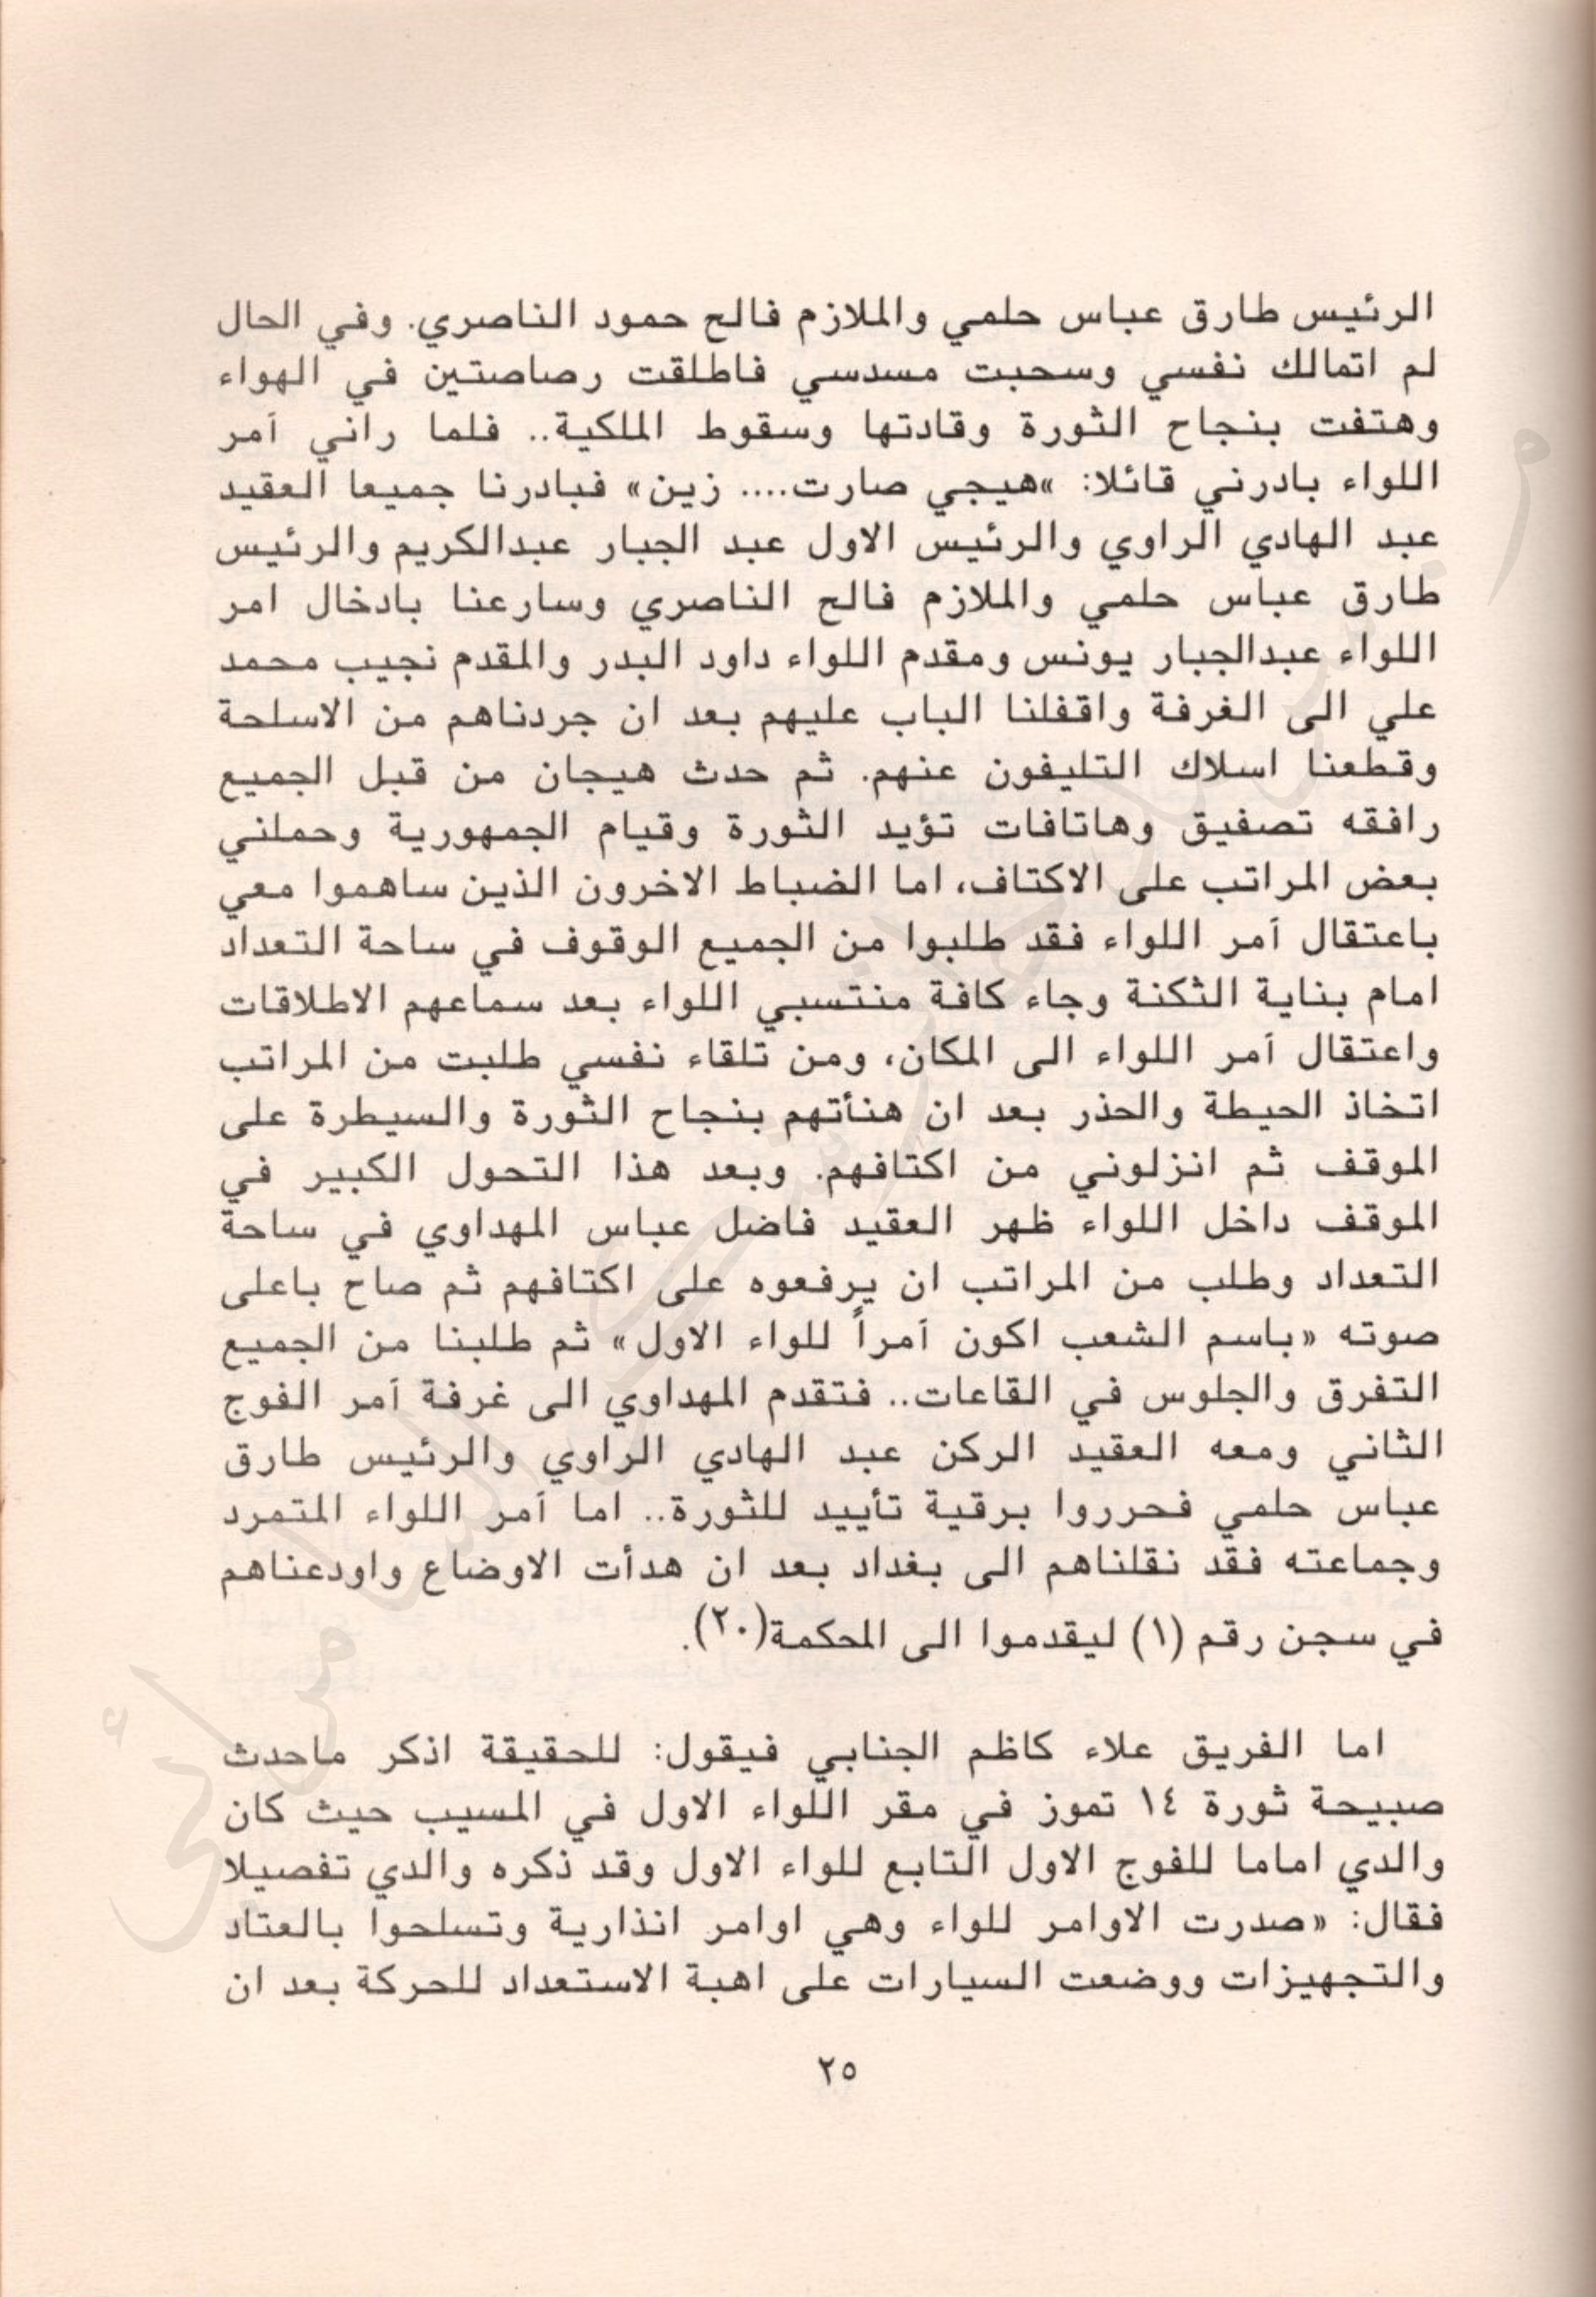 الرئيس طارق عباس حلمي والملازم فالح حمود الناصري. وفي الحال
لم اتمالك نفسي وسحبت مسدسي فاطلقت رصاصتين في الهواء
وهتفت بنجاح الثورة وقادتها وسقوط الملكية.. فلما راني آمر
اللواء بادرني قائلا: »هيجي صارت.... زين» فبادرنا جميعا العقيد
عبد الهادي الراوي والرئيس الاول عبد الجبار عبدالكريم والرئيس
طارق عباس حلمي والملازم فالح الناصري وسارعنا بادخال امر
اللواء عبدالجبار يونس ومقدم اللواء داود البدر والمقدم نجيب محمد
علي الى الغرفة واقفلنا الباب عليهم بعد ان جردناهم من الاسلحة
وقطعنا اسلاك التليفون عنهم. ثم حدث هيجان من قبل الجميع
رافقه تصفيق وهاتافات تؤيد الثورة وقيام الجمهورية وحملني
بعض المراتب على الاكتاف، اما الضباط الاخرون الذين ساهموا معي
باعتقال آمر اللواء فقد طلبوا من الجميع الوقوف في ساحة التعداد
امام بناية الثكنة وجاء كافة منتسبي اللواء بعد سماعهم الاطلاقات
واعتقال آمر اللواء الى المكان، ومن تلقاء نفسي طلبت من المراتب
اتخاذ الحيطة والحذر بعد ان هنأتهم بنجاح الثورة والسيطرة على
الموقف ثم انزلوني من اكتافهم. وبعد هذا التحول الكبير في
الموقف داخل اللواء ظهر العقيد فاضل عباس المهداوي في ساحة
التعداد وطلب من المراتب ان يرفعوه على اكتافهم ثم صاح باعلى
صوته «باسم الشعب اكون آمراً للواء الاول» ثم طلبنا من الجميع
التفرق والجلوس في القاعات.. فتقدم المهداوي الى غرفة آمر الفوج
الثاني ومعه العقيد الركن عبد الهادي الراوي والرئيس طارق
عباس حلمي فحرروا برقية تأييد للثورة.. اما آمر اللواء المتمرد
وجماعته فقد نقلناهم الى بغداد بعد ان هدأت الاوضاع واودعناهم
في سجن رقم (١) ليقدموا الى المحكمة(٢٠).
اما الفريق علاء كاظم الجنابي فيقول: للحقيقة اذكر ماحدث
صبيحة ثورة ١٤ تموز في مقر اللواء الاول في المسيب حيث كان
والدي اماما للفوج الاول التابع للواء الاول وقد ذكره والدي تفصيلا
فقال: «صدرت الاوامر للواء وهي اوامر انذارية وتسلحوا بالعتاد
والتجهيزات ووضعت السيارات على اهبة الاستعداد للحركة بعد ان
٢٥